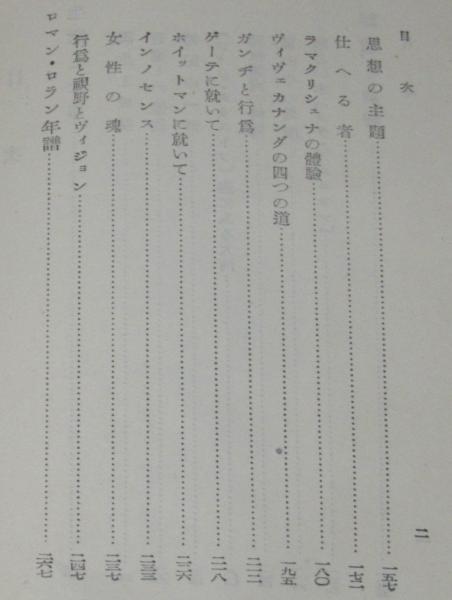 目次
二
思想の主題……一五七
仕へる者……一七二
ラマクリシュナの體驗……一八〇
ヴィヴェカナンダの四つの道……一九五
ガンヂと行爲……二一二
ゲーテに就いて……二一八
ホイットマンに就いて……二二六
インノセンス……二三三
女性の魂……二三七
行爲と視野とヴィジョン……二四七
ロマン・ロラン年譜……二六七